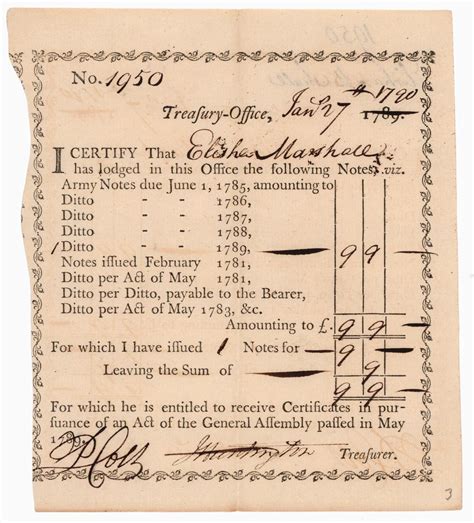 No. 1950
Treasury-Office, Jany 27 # 1790
1789.
I CERTIFY That Elisha Marshall
has lodged in this Office the following Notes, viz.
Army Notes due June 1, 1785, amounting to
Ditto - - 1786,
Ditto - - 1787,
Ditto - - 1788,
1 Ditto - - 1789, — 9 9 —
Notes issued February 1781,
Ditto per Act of May 1781,
Ditto per Ditto, payable to the Bearer,
Ditto per Act of May 1783, &c.
Amounting to £. 9 9
For which I have issued 1 Notes for — 9 9
Leaving the Sum of — 9 9
For which he is entitled to receive Certificates in pur-
suance of an Act of the General Assembly passed in May
1789. P Colt JHuntington Treasurer.
3